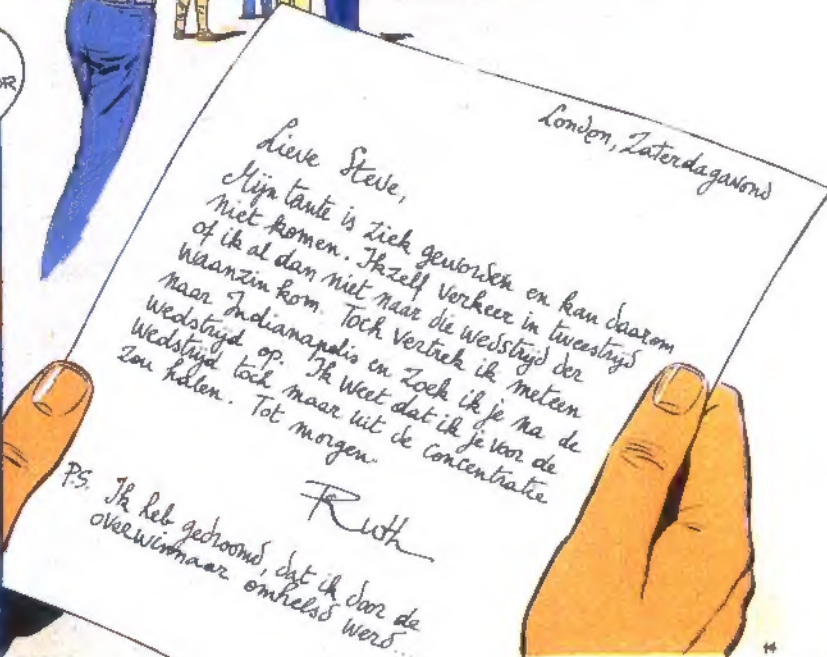 OR
London, Zaterdagavond
Lieve Steve,
Mijn tante is ziek geworden en kan daarom
niet komen. Ikzelf verkeer in tweestrijd
of ik al dan niet naar die wedstrijd der
waanzin kom. Toch vertrek ik meteen
naar Indianapolis en zoek ik je na de
wedstrijd op. Ik weet dat ik je voor de
wedstrijd toch maar uit de concentratie
zou halen. Tot morgen.
Ruth
P.S. Ik heb gedroomd, dat ik door de
overwinnaar omhelsd werd...
14